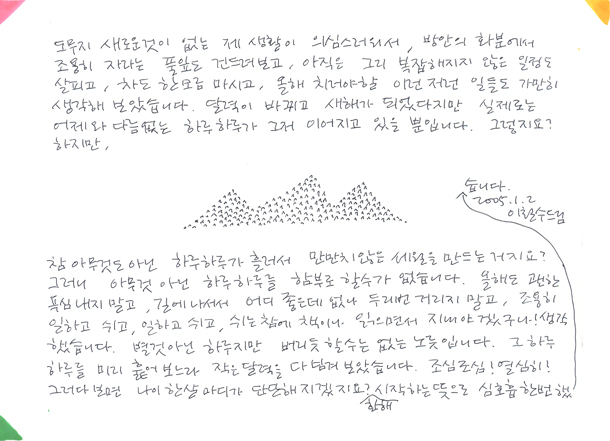 도무지 새로운것이 없는 제 생활이 의심스러워서, 방안의 화분에서
조용히 자라는 풀잎도 건드려보고, 아직은 그리 복잡해지지 않은 일정도
살피고, 차도 한모금 마시고, 올해 치러야할 이런 저런 일들도 가만히
생각해 보았습니다. 달력이 바뀌고 새해가 되었다지만 실제로는
어제와 다름없는 하루하루가 그저 이어지고 있을 뿐입니다. 그렇지요?
하지만,
참 아무것도 아닌 하루하루가 흘러서 만만치않은 세월을 만드는거지요?
그러니 아무것 아닌 하루하루를 함부로 할수가 없습니다. 올해도 괜한
욕심내지 말고, 길에 나서서 어디 좋은데 없나 두리번 거리지 말고, 조용히
일하고 쉬고, 일하고 쉬고, 쉬는참에 책이나 읽으면서 지내야 겠구나! 생각
했습니다. 별것아닌 하루지만 버리듯 할수는 없는 노릇입니다. 그 하루
하루를 미리 훑어 보느라 작은달력을 다 넘겨 보았습니다. 조심조심! 열심히!
그러다 보면 나이 한살 마디가 단단해 지겠지요? 시작하는 뜻으로 심호흡 한번 했
한해
습니다.
2005.1.2
이철수드림